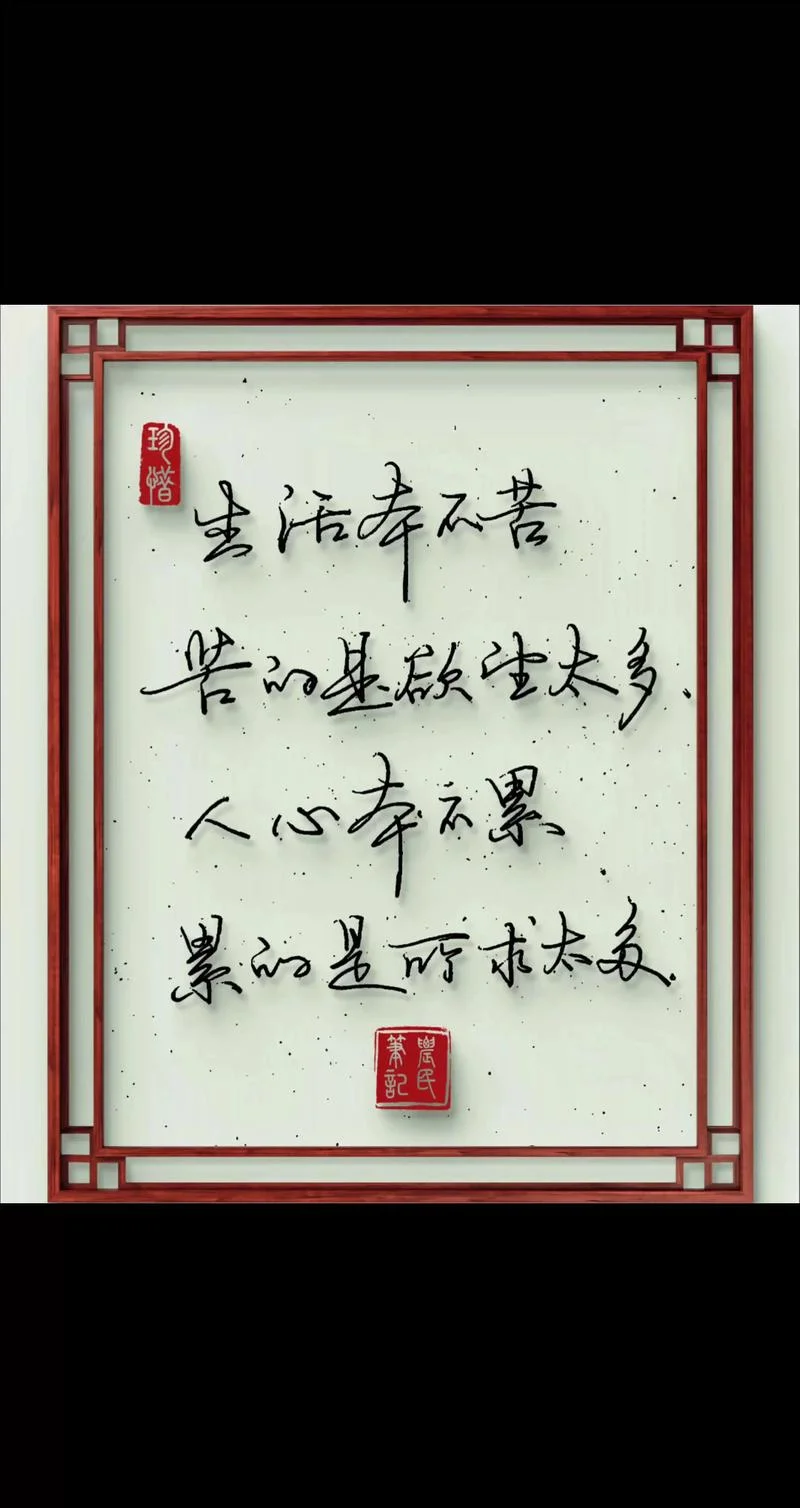 珍惜
生活本不苦
苦的是欲望太多.
人心本不累
累的是所求太多.
農民
筆記